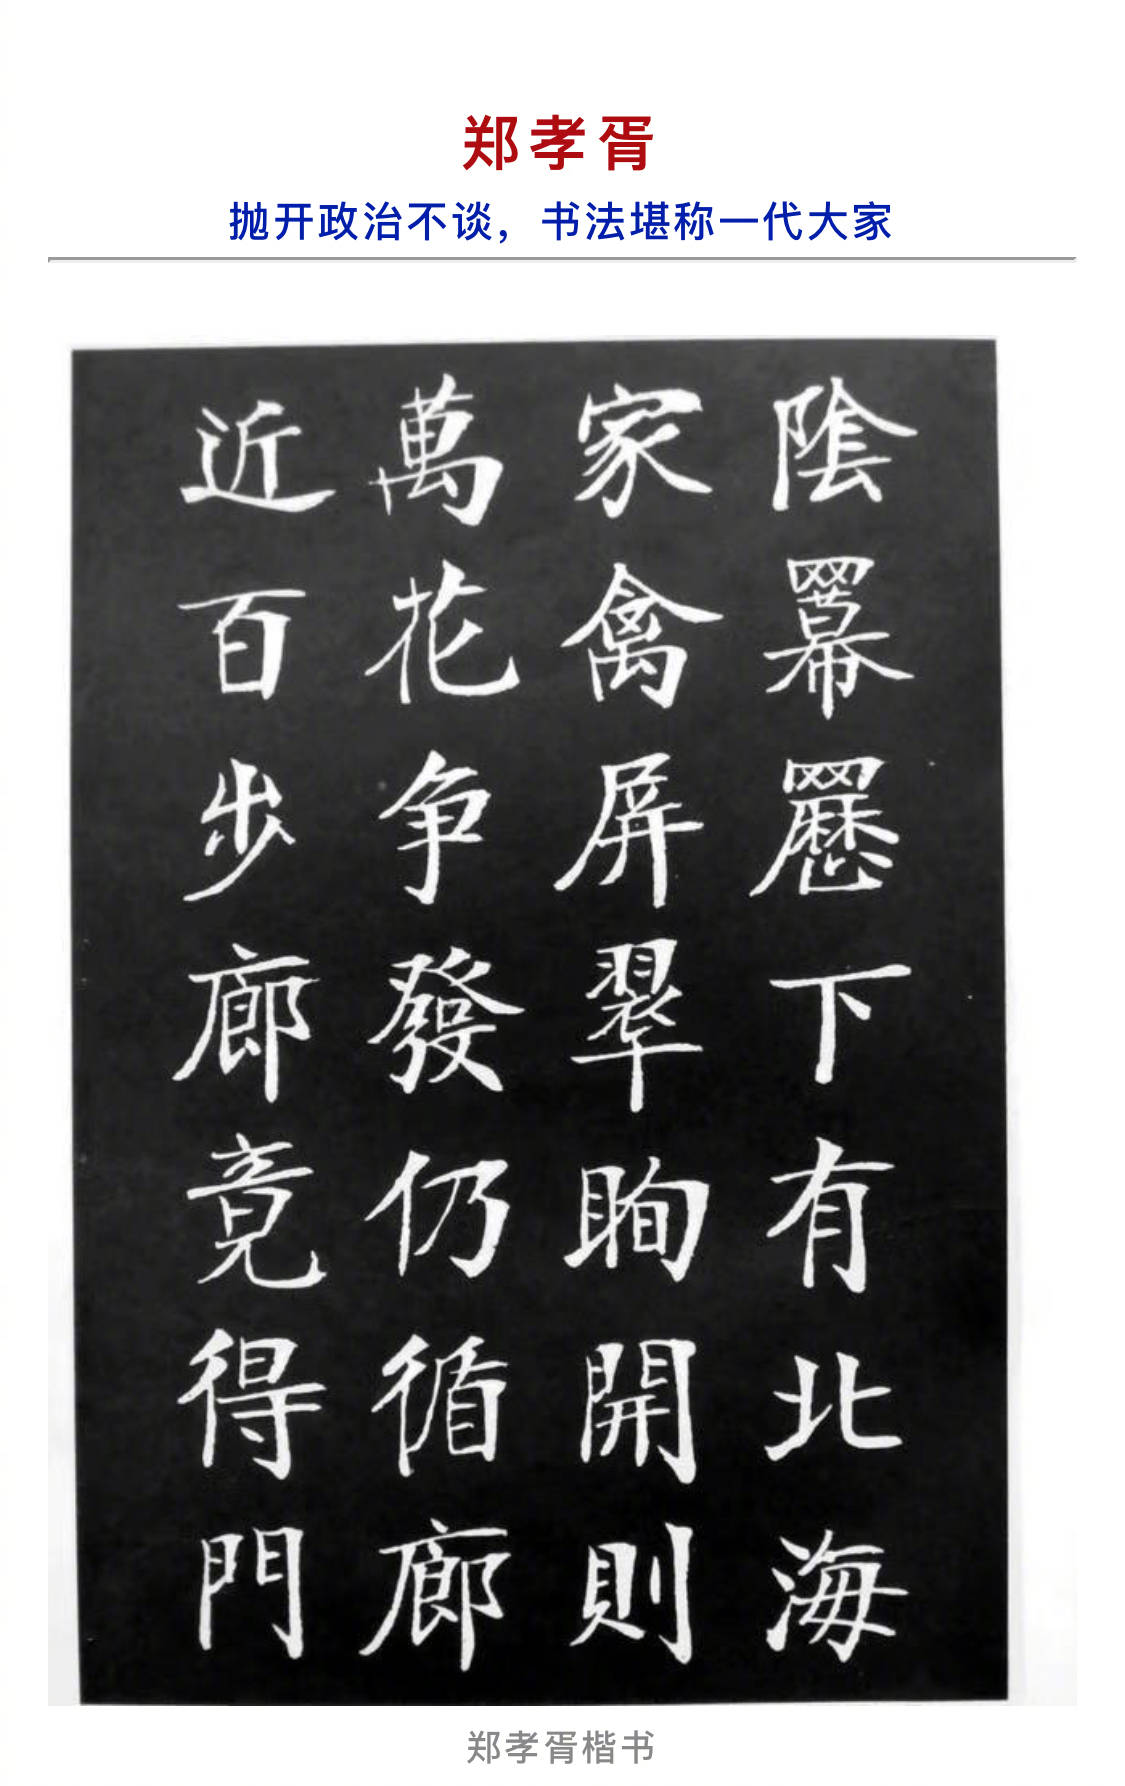 郑孝胥
抛开政治不谈，书法堪称一代大家
陰羃䍥下有北海
家禽屏翠眴開則
萬花争發仍循廊
近百步廊竟得門
郑孝胥楷书